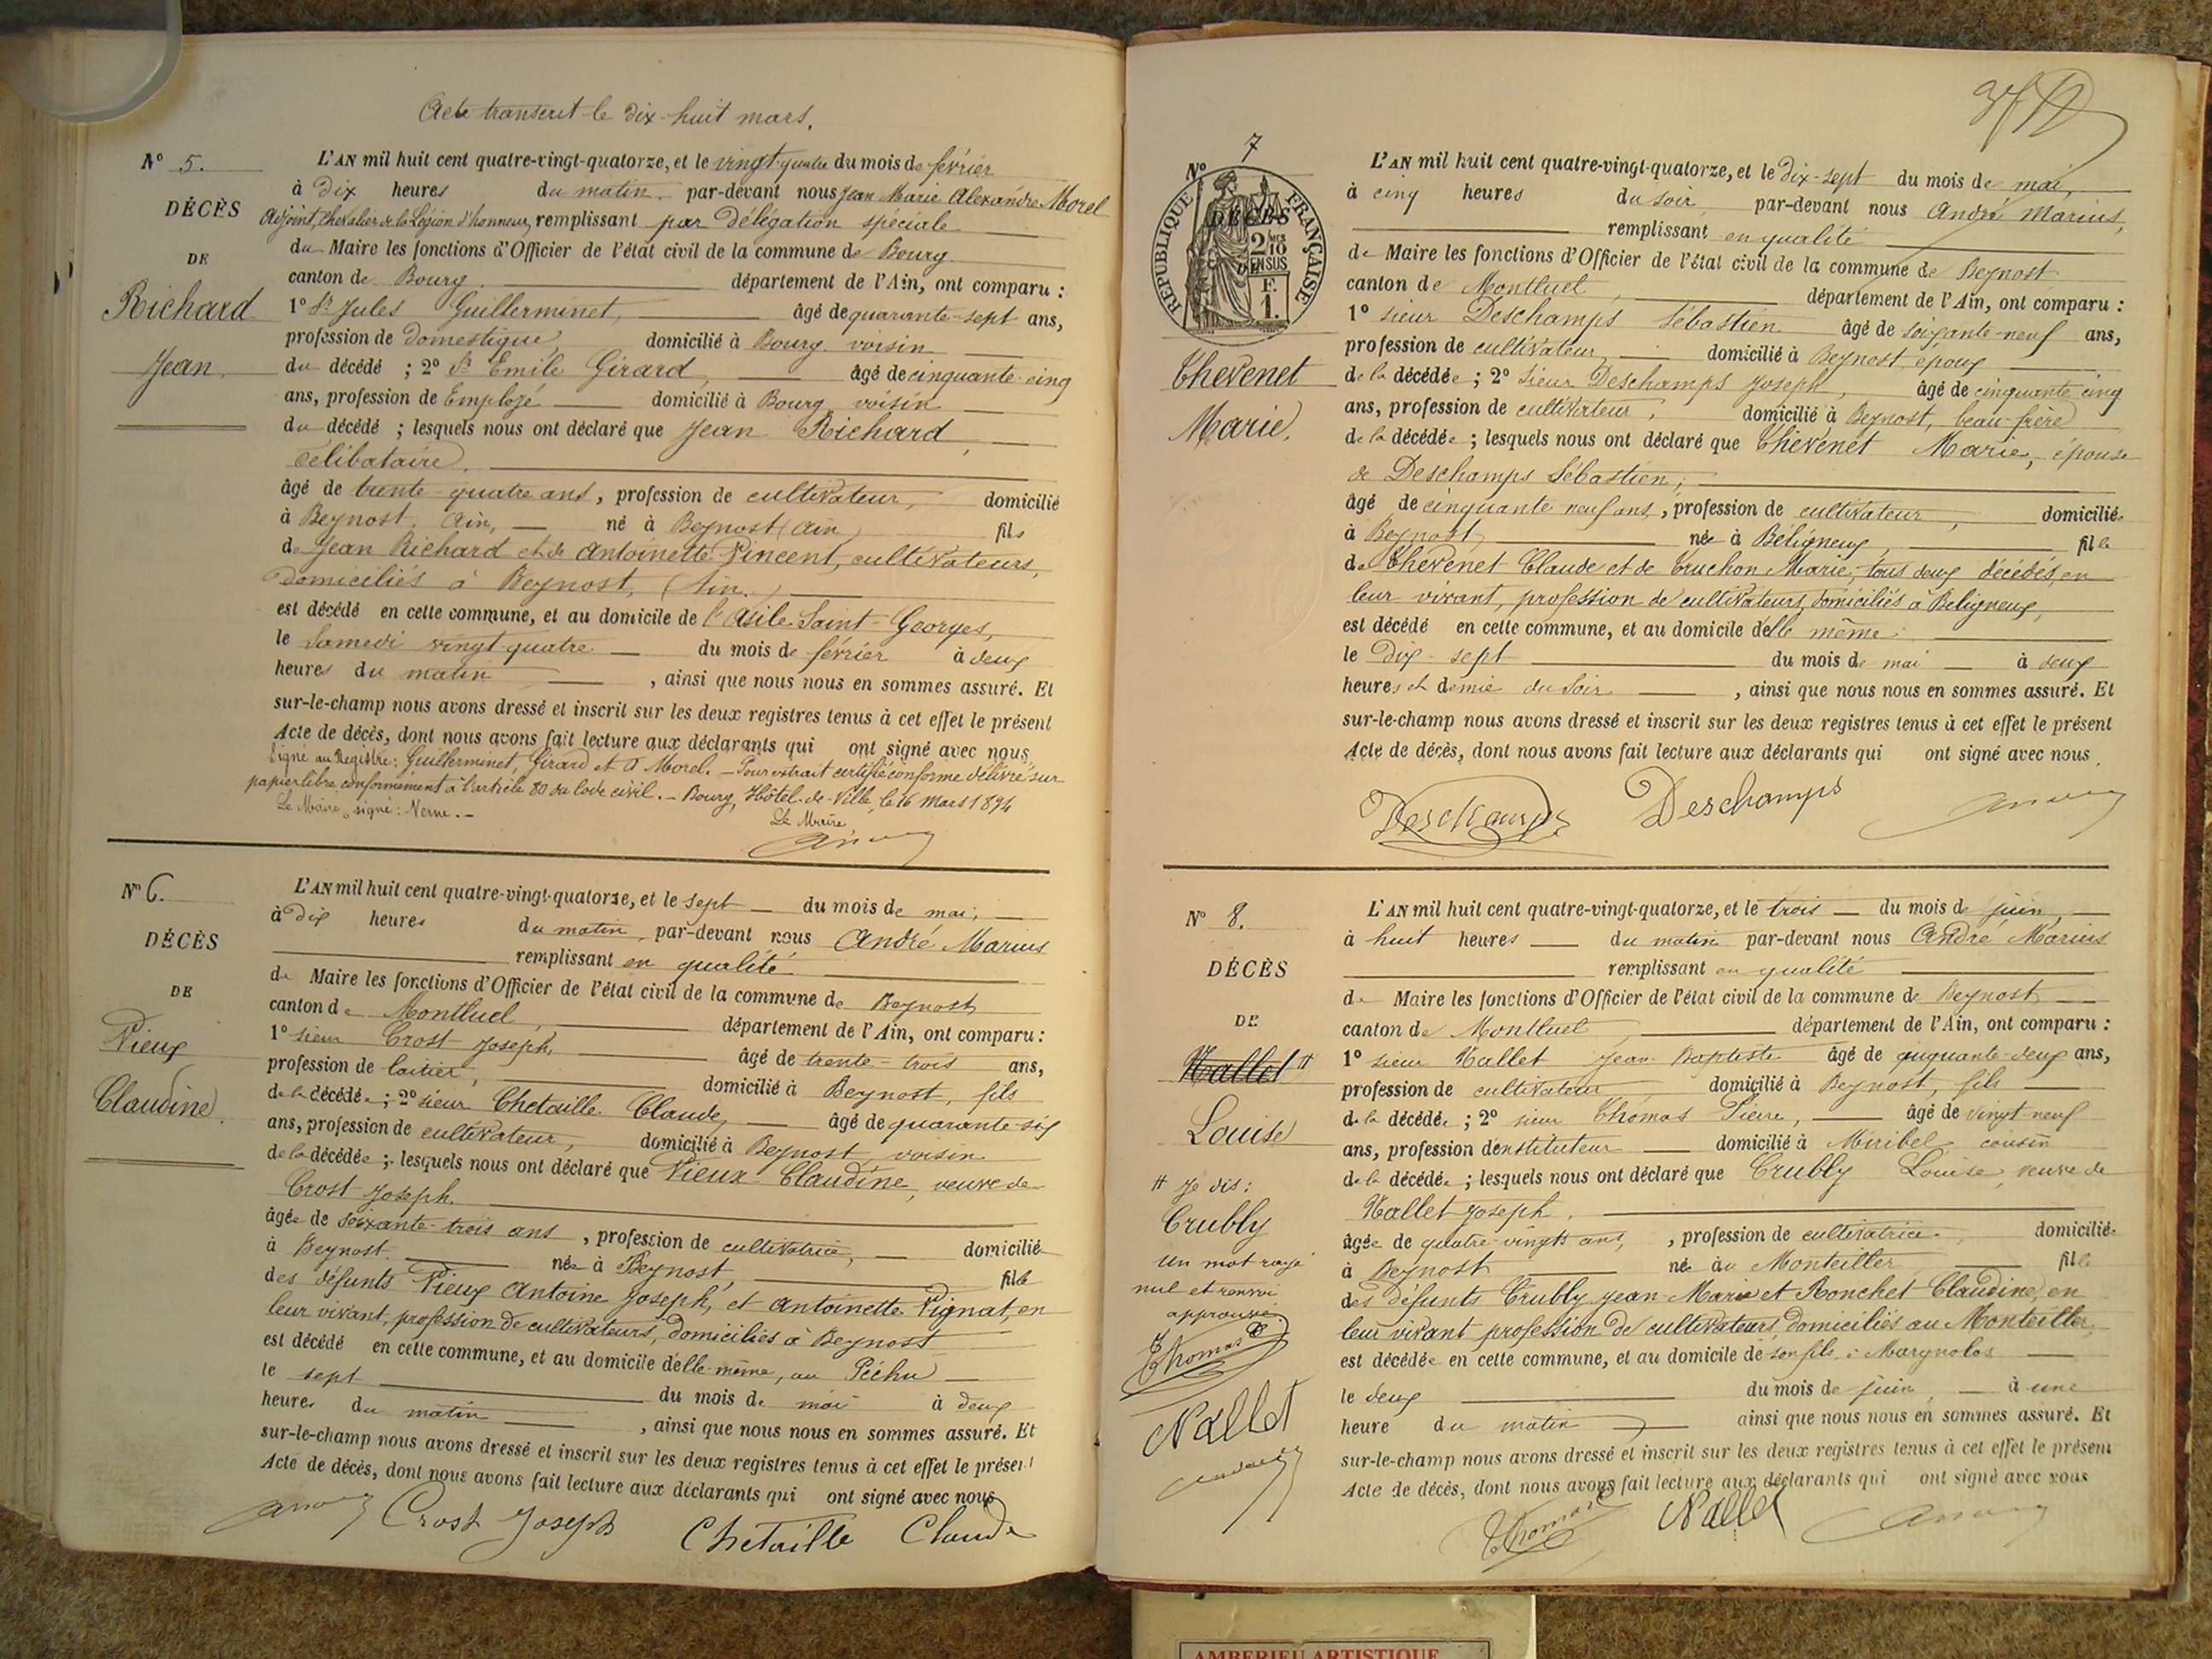 Acte transcrit le dix-huit mars.
N° 5.
DÉCÈS
DE
Richard
Jean.
L'AN mil huit cent quatre-vingt-quatorze, et le vingt quatre du mois de février
à Dix heures du matin. par-devant nous Jean Marie Alexandre Morel
Adjoint, Chevalier de la Légion d'honneur, remplissant par Délégation spéciale
du Maire les fonctions d'Officier de l'état civil de la commune de Bourg
canton de Bourg département de l'Ain, ont comparu :
1° Sr Jules Guillerminet, âgé de quarante-sept ans,
profession de Domestique, domicilié à Bourg voisin
du décédé ; 2° Sr Emile Girard, âgé de cinquante cinq
ans, profession de Employé domicilié à Bourg voisin
du décédé ; lesquels nous ont déclaré que Jean Richard,
célibataire.
âgé de trente-quatre ans, profession de cultivateur, domicilié
à Beynost, Ain, né à Beynost (Ain) fils
de Jean Richard et de Antoinette Vincent, cultivateurs,
domiciliés à Beynost, (Ain.)
est décédé en cette commune, et au domicile de l'Asile Saint-Georges,
le Samedi vingt quatre du mois de février à deux
heures du matin, ainsi que nous nous en sommes assuré. Et
sur-le-champ nous avons dressé et inscrit sur les deux registres tenus à cet effet le présent
Acte de décès, dont nous avons fait lecture aux déclarants qui ont signé avec nous
Signé au Registre : Guillerminet, Girard et A Morel. — Pour extrait certifié conforme délivré sur
papier libre conformément à l'article 80 du Code civil. — Bourg, Hôtel-de-Ville, le 16 Mars 1894
Le Maire, signé : Verne. —
Le Maire
N° 6.
DÉCÈS
DE
Vieux
Claudine
L'AN mil huit cent quatre-vingt-quatorze, et le sept du mois de mai,
à Dix heures du matin, par-devant nous André Marius
remplissant en qualité
de Maire les fonctions d'Officier de l'état civil de la commune de Beynost
canton de Montluel, département de l'Ain, ont comparu :
1° sieur Crost Joseph, âgé de trente-trois ans,
profession de laitier, domicilié à Beynost, fils
de la décédée ; 2° sieur Chetaille Claude, âgé de quarante-six
ans, profession de cultivateur, domicilié à Beynost voisin
de la décédée ; lesquels nous ont déclaré que Vieux Claudine, veuve de
Crost Joseph.
âgée de soixante-trois ans, profession de cultivatrice, domicilié
à Beynost née à Beynost, fille
des défunts Vieux Antoine Joseph, et Antoinette Pignat, en
leur vivant, profession de cultivateurs, domiciliés à Beynost
est décédé en cette commune, et au domicile d'elle-même, au Péchu
le sept du mois de mai à deux
heures du matin, ainsi que nous nous en sommes assuré. Et
sur-le-champ nous avons dressé et inscrit sur les deux registres tenus à cet effet le présent
Acte de décès, dont nous avons fait lecture aux déclarants qui ont signé avec nous
Crost Joseph Chetaille Claude
N° 7
RÉPUBLIQUE FRANÇAISE
DÉCÈS
2/10 EN SUS
F. 1.
Thevenet
Marie.
L'AN mil huit cent quatre-vingt-quatorze, et le Dix-sept du mois de mai,
à cinq heures du soir par-devant nous André Marius,
remplissant en qualité
de Maire les fonctions d'Officier de l'état civil de la commune de Beynost
canton de Montluel, département de l'Ain, ont comparu :
1° sieur Deschamps Sébastien âgé de soixante-neuf ans,
profession de cultivateur, domicilié à Beynost, époux
de la décédée ; 2° sieur Deschamps Joseph, âgé de cinquante cinq
ans, profession de cultivateur, domicilié à Beynost, beau-frère
de la décédée ; lesquels nous ont déclaré que Thevenet Marie, épouse
de Deschamps Sébastien,
âgé de cinquante neuf ans, profession de cultivateur, domiciliée
à Beynost, née à Béligneux, fille
de Thevenet Claude et de Truchon Marie, tous deux décédés, en
leur vivant, profession de cultivateurs, domiciliés à Béligneux,
est décédé en cette commune, et au domicile d'elle même
le Dix-sept du mois de mai à deux
heures et demie du soir, ainsi que nous nous en sommes assuré. Et
sur-le-champ nous avons dressé et inscrit sur les deux registres tenus à cet effet le présent
Acte de décès, dont nous avons fait lecture aux déclarants qui ont signé avec nous.
Deschamps Deschamps
N° 8.
DÉCÈS
DE
Nallet #
Louise
# Je dis :
Trubly
un mot rayé
nul et renvoi
approuvé.
Thomas
Nallet
L'AN mil huit cent quatre-vingt-quatorze, et le trois du mois de juin,
à huit heures du matin par-devant nous André Marius
remplissant en qualité
de Maire les fonctions d'Officier de l'état civil de la commune de Beynost
canton de Montluel, département de l'Ain, ont comparu :
1° sieur Nallet Jean-Baptiste âgé de cinquante-deux ans,
profession de cultivateur domicilié à Beynost, fils
de la décédée ; 2° sieur Thomas Pierre, âgé de vingt-neuf
ans, profession d'instituteur domicilié à Miribel, cousin
de la décédée ; lesquels nous ont déclaré que Trubly Louise, veuve de
Nallet Joseph.
âgée de quatre-vingts ans, profession de cultivatrice, domiciliée
à Beynost née au Monteiller fille
des défunts Trubly Jean-Marie et Ronchet Claudine, en
leur vivant profession de cultivateurs, domiciliés au Monteiller,
est décédée en cette commune, et au domicile de son fils, à Margnolas
le deux du mois de juin, à une
heure du matin, ainsi que nous nous en sommes assuré. Et
sur-le-champ nous avons dressé et inscrit sur les deux registres tenus à cet effet le présent
Acte de décès, dont nous avons fait lecture aux déclarants qui ont signé avec nous
Thomas Nallet
AMBERIEU ARTISTIQUE